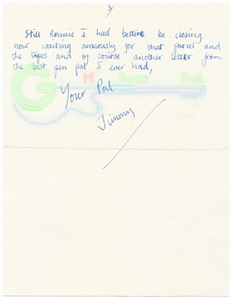 3/
Still Ronnie I had better be closing
now waiting anxiously for that parcel and
the tapes and of course another letter from
the best pen pal I ever had,
Your Pal
Jimmy